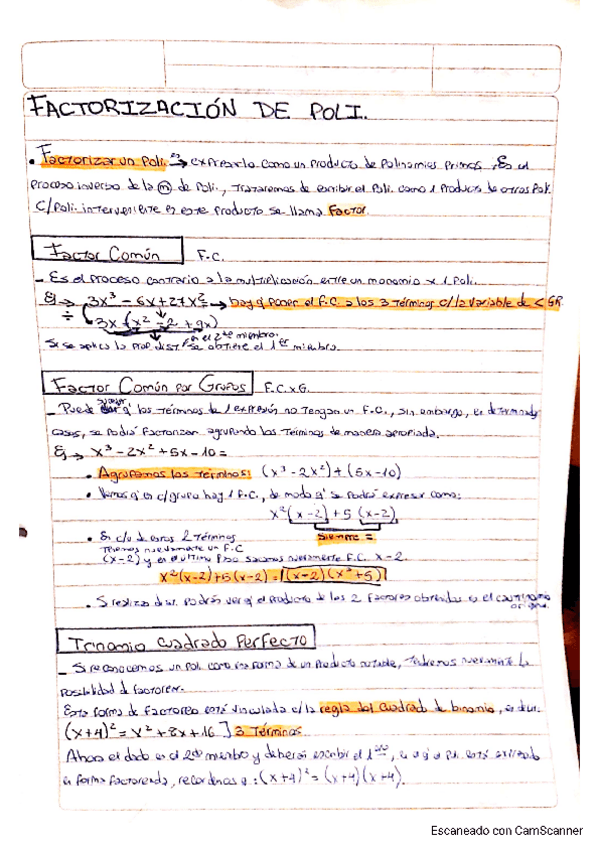 FACTORIZACIÓN DE POLI.
• Factorizar un Poli. es → expresarlo como un Producto de Polinomios Primos. Es el
proceso inverso de la (m) de Poli., Trataremos de escribir el Poli. como 1 Producto de otros Poli.
C/Poli. interviniente es este Producto se llama Factor.
Factor Común F.C.
- Es el proceso contrario a la multiplicación entre un monomio x 1 Poli.
Ej → 3x³ - 6x + 27x² → hay q' poner el F.C. a los 3 Términos c/la variable de < GR.
÷ 3x (x² - 2 + 9x)
Si se aplica la Prop. dist. en el 2do miembro, se obtiene el 1er miembro.
Factor Común por Grupos F.C.xG.
- Puede suceder q' los Términos de 1 expresión no Tengan un F.C., sin embargo, en determinados
casos, se Podrá Factorizar agrupando los Términos de manera apropiada.
Ej → x³ - 2x² + 5x - 10 =
• Agrupamos los Términos: (x³ - 2x²) + (5x - 10)
• Vemos q' en c/grupo hay 1 F.C., de modo q' se Podrá expresar como:
x² (x-2) + 5 (x-2)
• En c/u de esos 2 Términos siempre =
Tenemos nuevamente un F.C
(x-2) y en el último Paso sacamos nuevamente F.C. x-2.
x²(x-2)+5(x-2) = (x-2)(x²+5)
• Si realizo dist. Podrás ver q' el Producto de los 2 Factores obtenidos es el
Trinomio Cuadrado Perfecto
- Si reconocemos un poli. como una forma de un Producto notable, Tendremos nuevamente la
Posibilidad de factorear.
Esta forma de Factoreo está vinculada c/la regla del cuadrado de binomio, es dcir.
(x+4)² = x² + 8x + 16 ] 3 Términos
Ahora el dado es el 2do miembro y deberás escribir el 1ero, es q' el Poli. esté expresado
en forma Factoreada, recordemos q': (x+4)² = (x+4)(x+4).
Escaneado con CamScanner